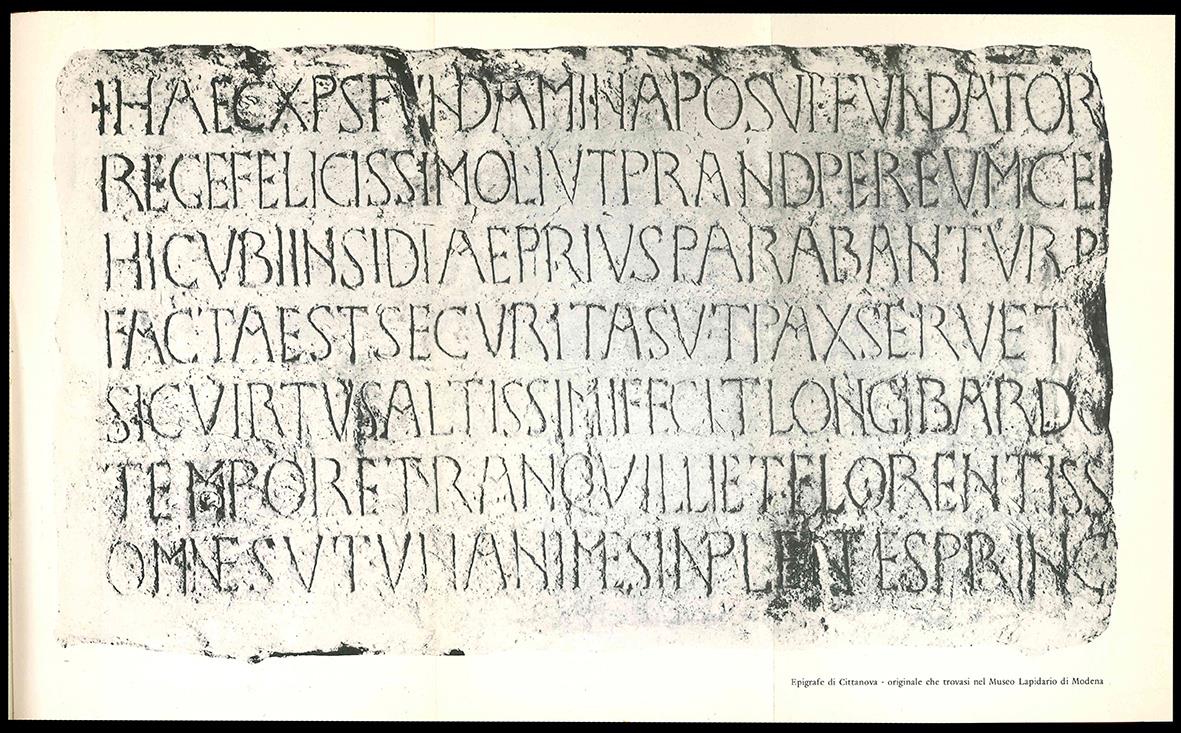 ✝HAECXPSFVNDAMINAPOSVITFVNDATOR
REGEFELICISSIMOLIVTPRANDPEREVMCE
HICVBIINSIDIAEPRIVSPARABANTVRP
FACTAESTSECVRITASVTPAXSERVET
SICVIRTVSALTISSIMIFECITLONGIBARDO
TEMPORETRANQVILLIETFLORENTISS
OMNESVTVNANIMESINPLENTESPRINC
Epigrafe di Cittanova - originale che trovasi nel Museo Lapidario di Modena